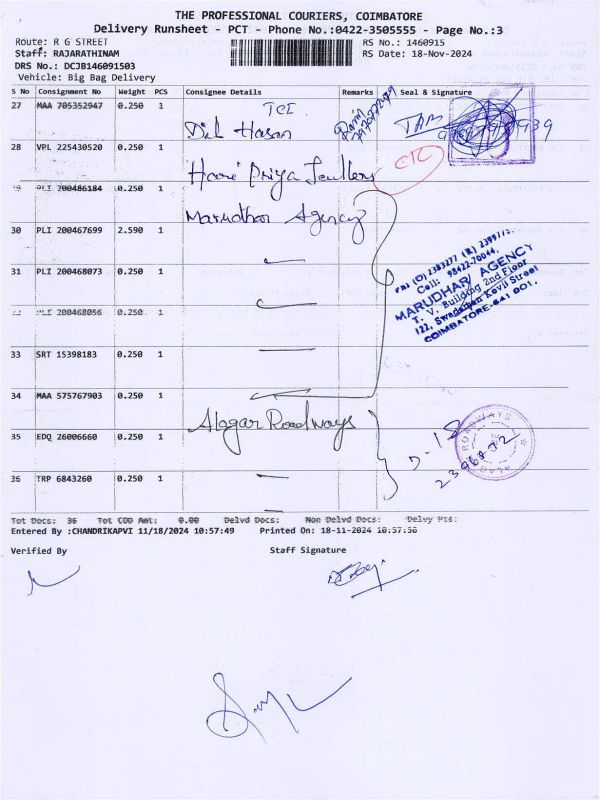 THE PROFESSIONAL COURIERS, COIMBATORE
Delivery Runsheet - PCT - Phone No.:0422-3505555 - Page No.:3
Route: R G STREET RS No.: 1460915
Staff: RAJARATHINAM RS Date: 18-Nov-2024
DRS No.: DCJB146091503
Vehicle: Big Bag Delivery
S No Consignment No Weight PCS Consignee Details Remarks Seal & Signature
27 MAA 705352947 0.250 1 TCE
Hasan
28 VPL 225430520 0.250 1 Hari Priya
PLI 200486184 0.250 1 Marudhar Agency
30 PLI 200467699 2.590 1
31 PLI 200468073 0.250 1
200468056 0.250 1
MARUDHAR AGENCY
T. V. Building 2nd Floor
COIMBATORE-641 001.
33 SRT 15398183 0.250 1
34 MAA 575767903 0.250 1
Alagar Roadways
ROADWAYS
35 EDQ 26006660 0.250 1
36 TRP 6843260 0.250 1
Tot Docs: 36 Tot COD Amt: 0.00 Delvd Docs: Non Delvd Docs: Delvy Pts:
Entered By :CHANDRIKAPVI 11/18/2024 10:57:49 Printed On: 18-11-2024 10:57:56
Verified By Staff Signature